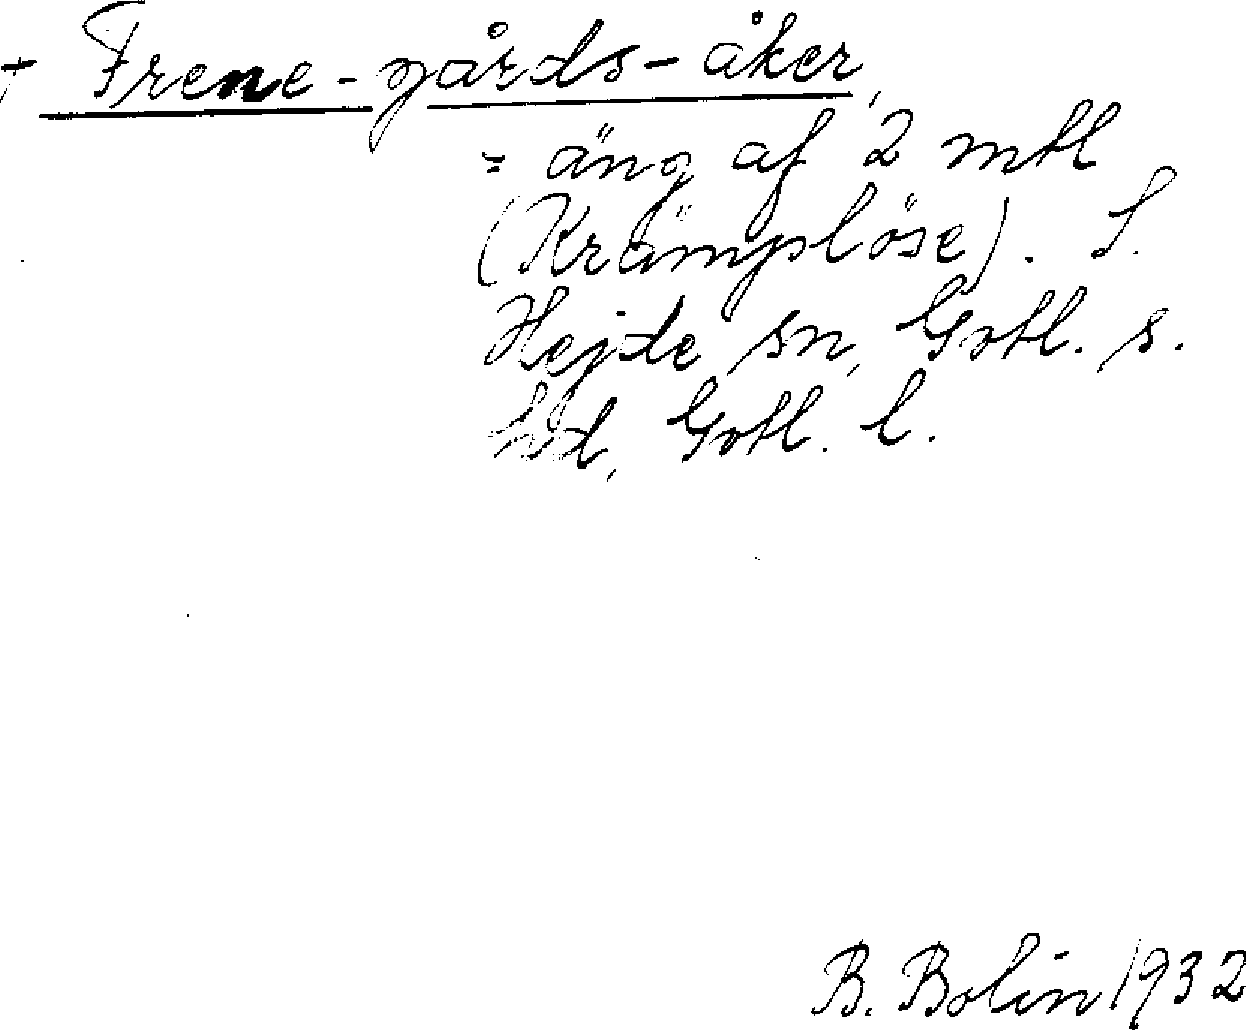 + Frene-gårds-åker,
= äng af 2 mtl
(Krämplöse). S.
Hejde sn, Gotl. s.
hd, Gotl. l.
B. Bolin 1932